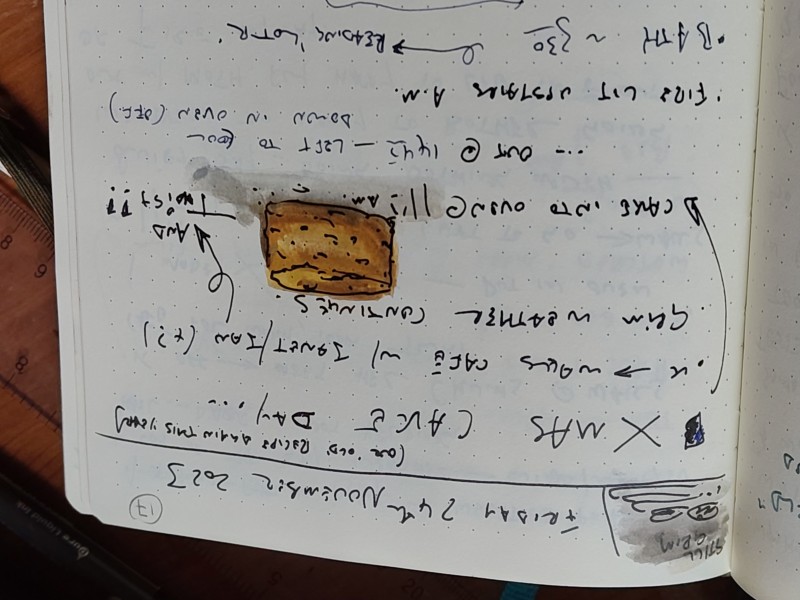 17
STILL
GRIM
FRIDAY 24th NOVEMBER 2023
(OUR 'OLD' RECIPE AGAIN THIS YEAR)
X MAS CAKE DAY ...
WALKS CAFÉ w/ JANET/IAN (+2)
GRIM WEATHER CONTINUES.
CAKE INTO OVEN @ 1115 AM ...
AND
TWIST
... OUT @ 1445 — LEFT TO COOL
DOWN IN OVEN (OFF.)
• FIRE LIT UPSTAIRS A.M.
• BATH ~ 530 READING 'LOTR'.